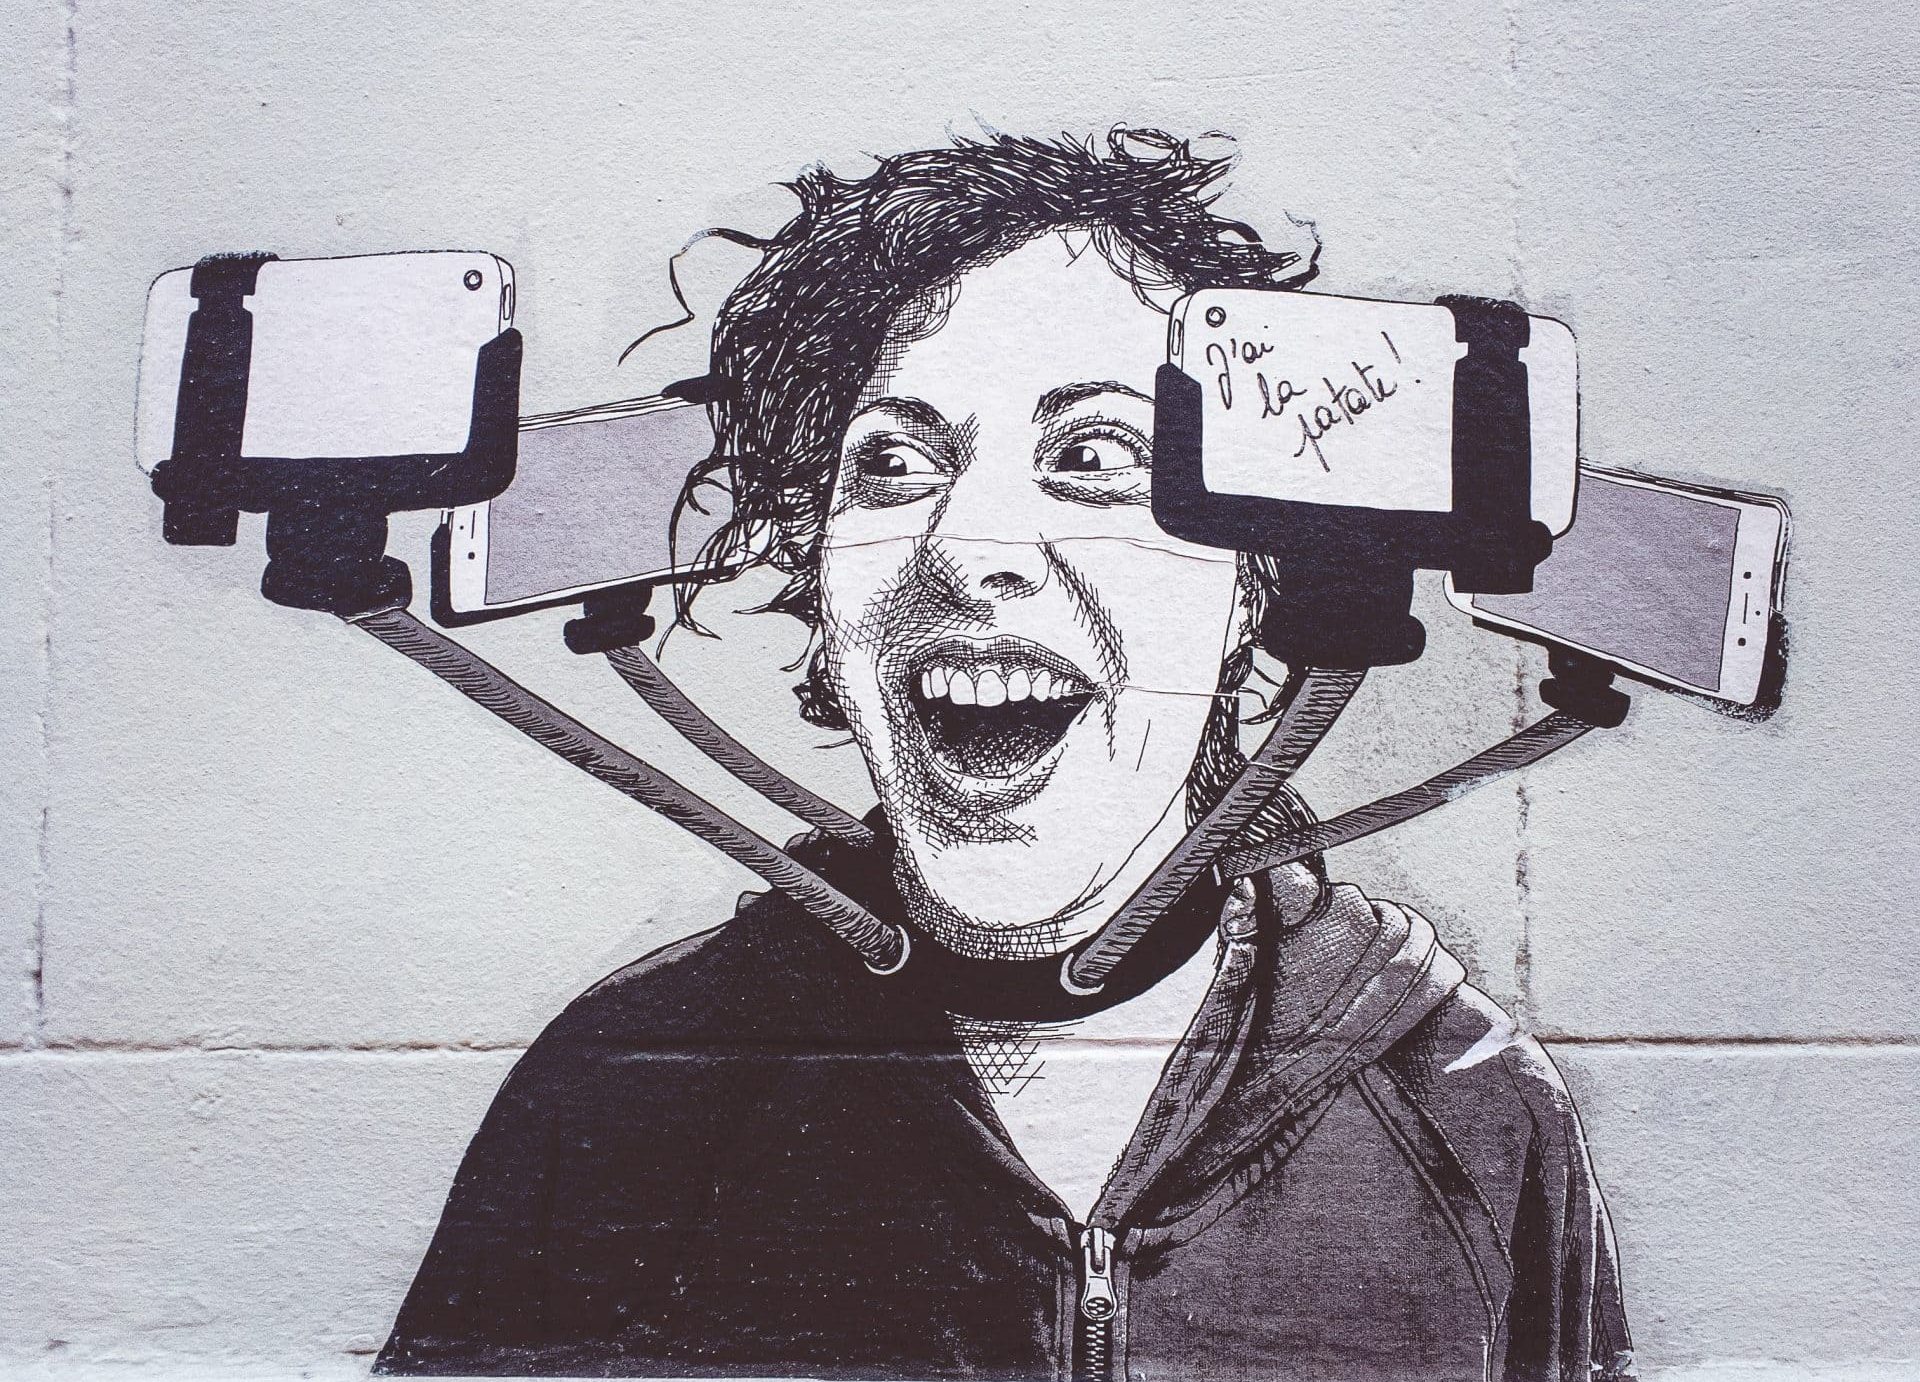 J'ai
la
patate!